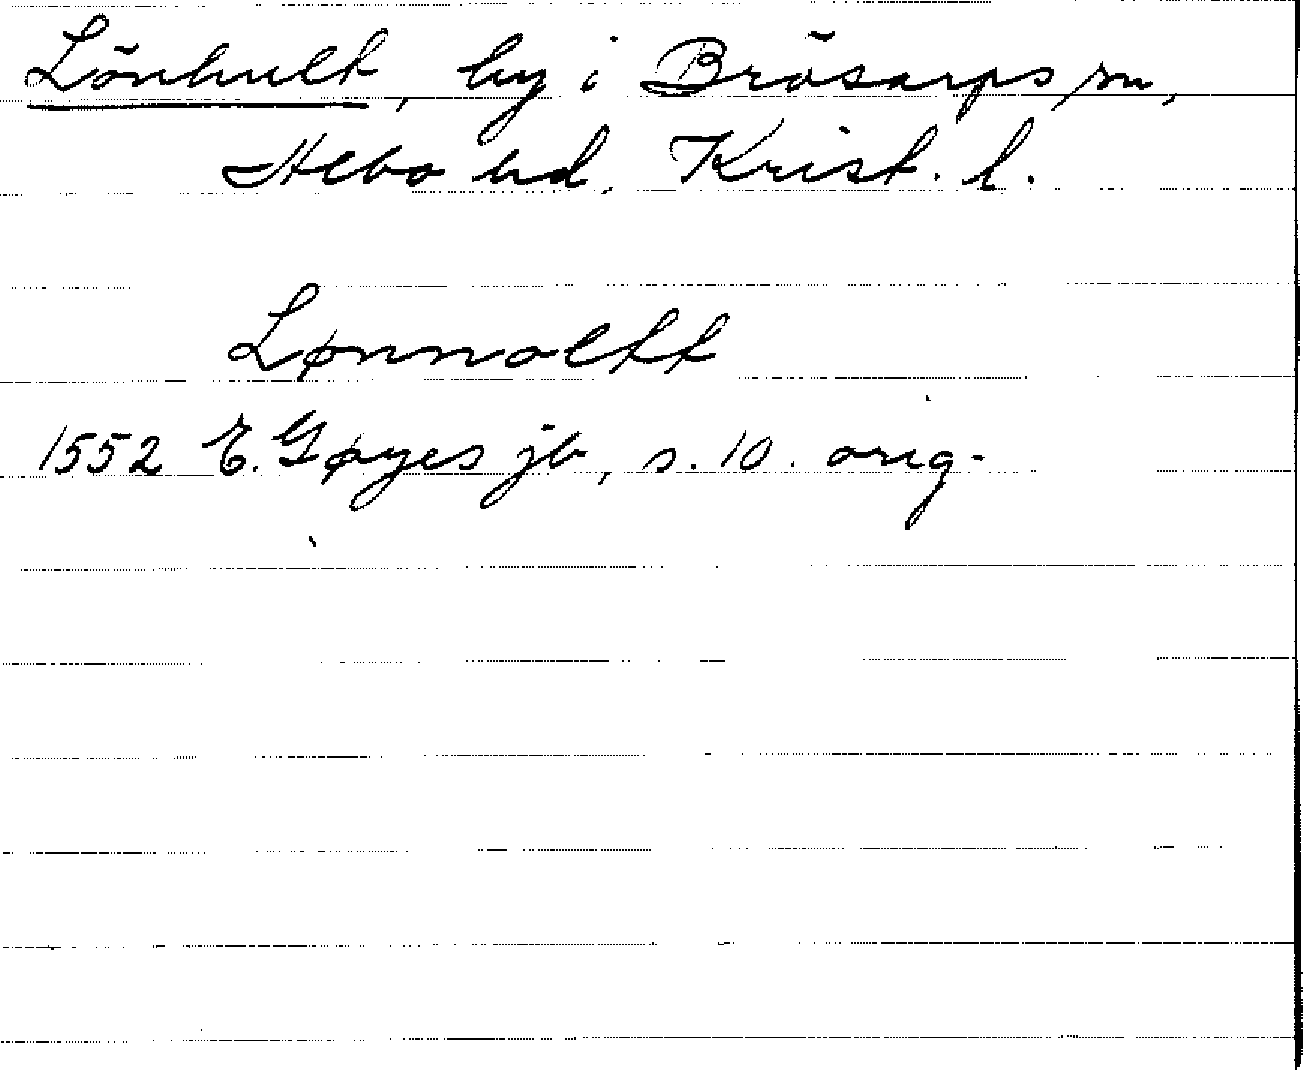 Lönhult, by i Brösarps sn,
Albo hd. Krist. l.
Lønnoltt
1552 E. Gøyes jb, s. 10. orig.